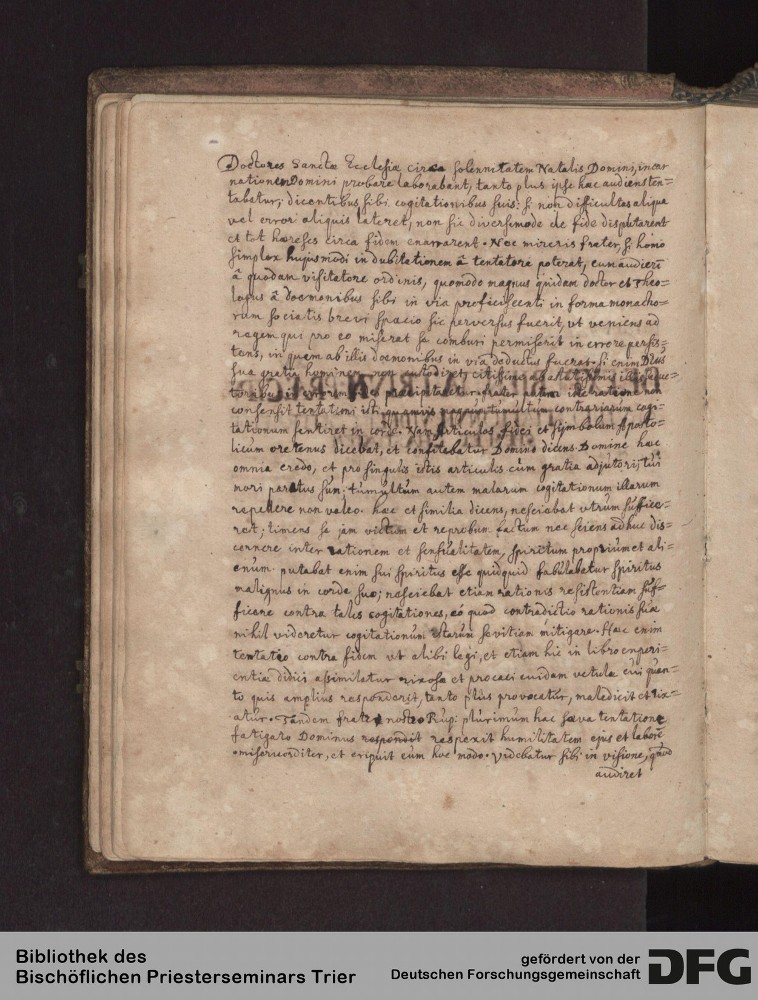 Doctores Sanctæ Ecclesiæ circa solennitatem Natalis Domini, incar
nationem Domini probare laborabant, tanto plus ipse hac audiens ten=
tabatur, dicentibus sibi cogitationibus suis: si non difficultas aliqua
vel error aliquis lateret, non sic diversimode de fide disputarent
et tot hæreses circa fidem enarrarent. Nec mireris frater, si homo
simplex hujusmodi in dubitationem â tentatore poterat, cum audierit
â quodam visitatore ordinis, quomodo magnus quidam doctor et Theo=
logus â dæmonibus sibi in via proficiscenti in forma monacho=
rum sociatis brevi spacio sic perversus fuerit, ut veniens ad
regem qui pro eo miserat se comburi permiserit in errore persis=
tens, in quem ab illis dæmonibus in via deductus fuerat. Si enim Deus
sua gratia hominem non custodiret, citissime
præcipitaretur frater autem iste ratione non
consensit tentationi isti, quamvis magnum tumultum contrariarum cogi=
tationum sentiret in corde. Nam articulos fidei et symbolum Aposto=
licum ore tenus dicebat, et confitebatur Domino dicens. Domine hæc
omnia credo, et pro singulis istis articulis cum gratia adjutorij tui
mori paratus sum: tumultum autem malarum cogitationum illarum
repellere non valeo. hæc et similia dicens, nesciebat utrum suffice=
ret; timens se jam victum et reprobum factum nec sciens adhuc dis=
cernere inter rationem et sensualitatem, spiritum proprium et ali=
enum. putabat enim sui spiritus esse quidquid fabulabatur spiritus
malignus in corde suo; nesciebat etiam rationis resistentiam suf=
ficere contra tales cogitationes, eo quod contradictio rationis suæ
nihil videretur cogitationum istarum sævitiam mitigare. Hæc enim
tentatio contra fidem ut alibi legi, et etiam hic in libro experi=
entiæ didici assimilatur rixosæ et procaci cuidam vetulæ cui quan=
to quis amplius responderit, tanto plus provocatur, maledicit et rix=
atur. Tandem fratre nostro Rup: plurimum hac sæva tentatione
fatigato Dominus respondit respexit humilitatem ejus et laborē
misericorditer, et eripuit eum hoc modo. Videbatur sibi in visione, quod
audiret
Bibliothek des
Bischöflichen Priesterseminars Trier
gefördert von der
Deutschen Forschungsgemeinschaft
DFG